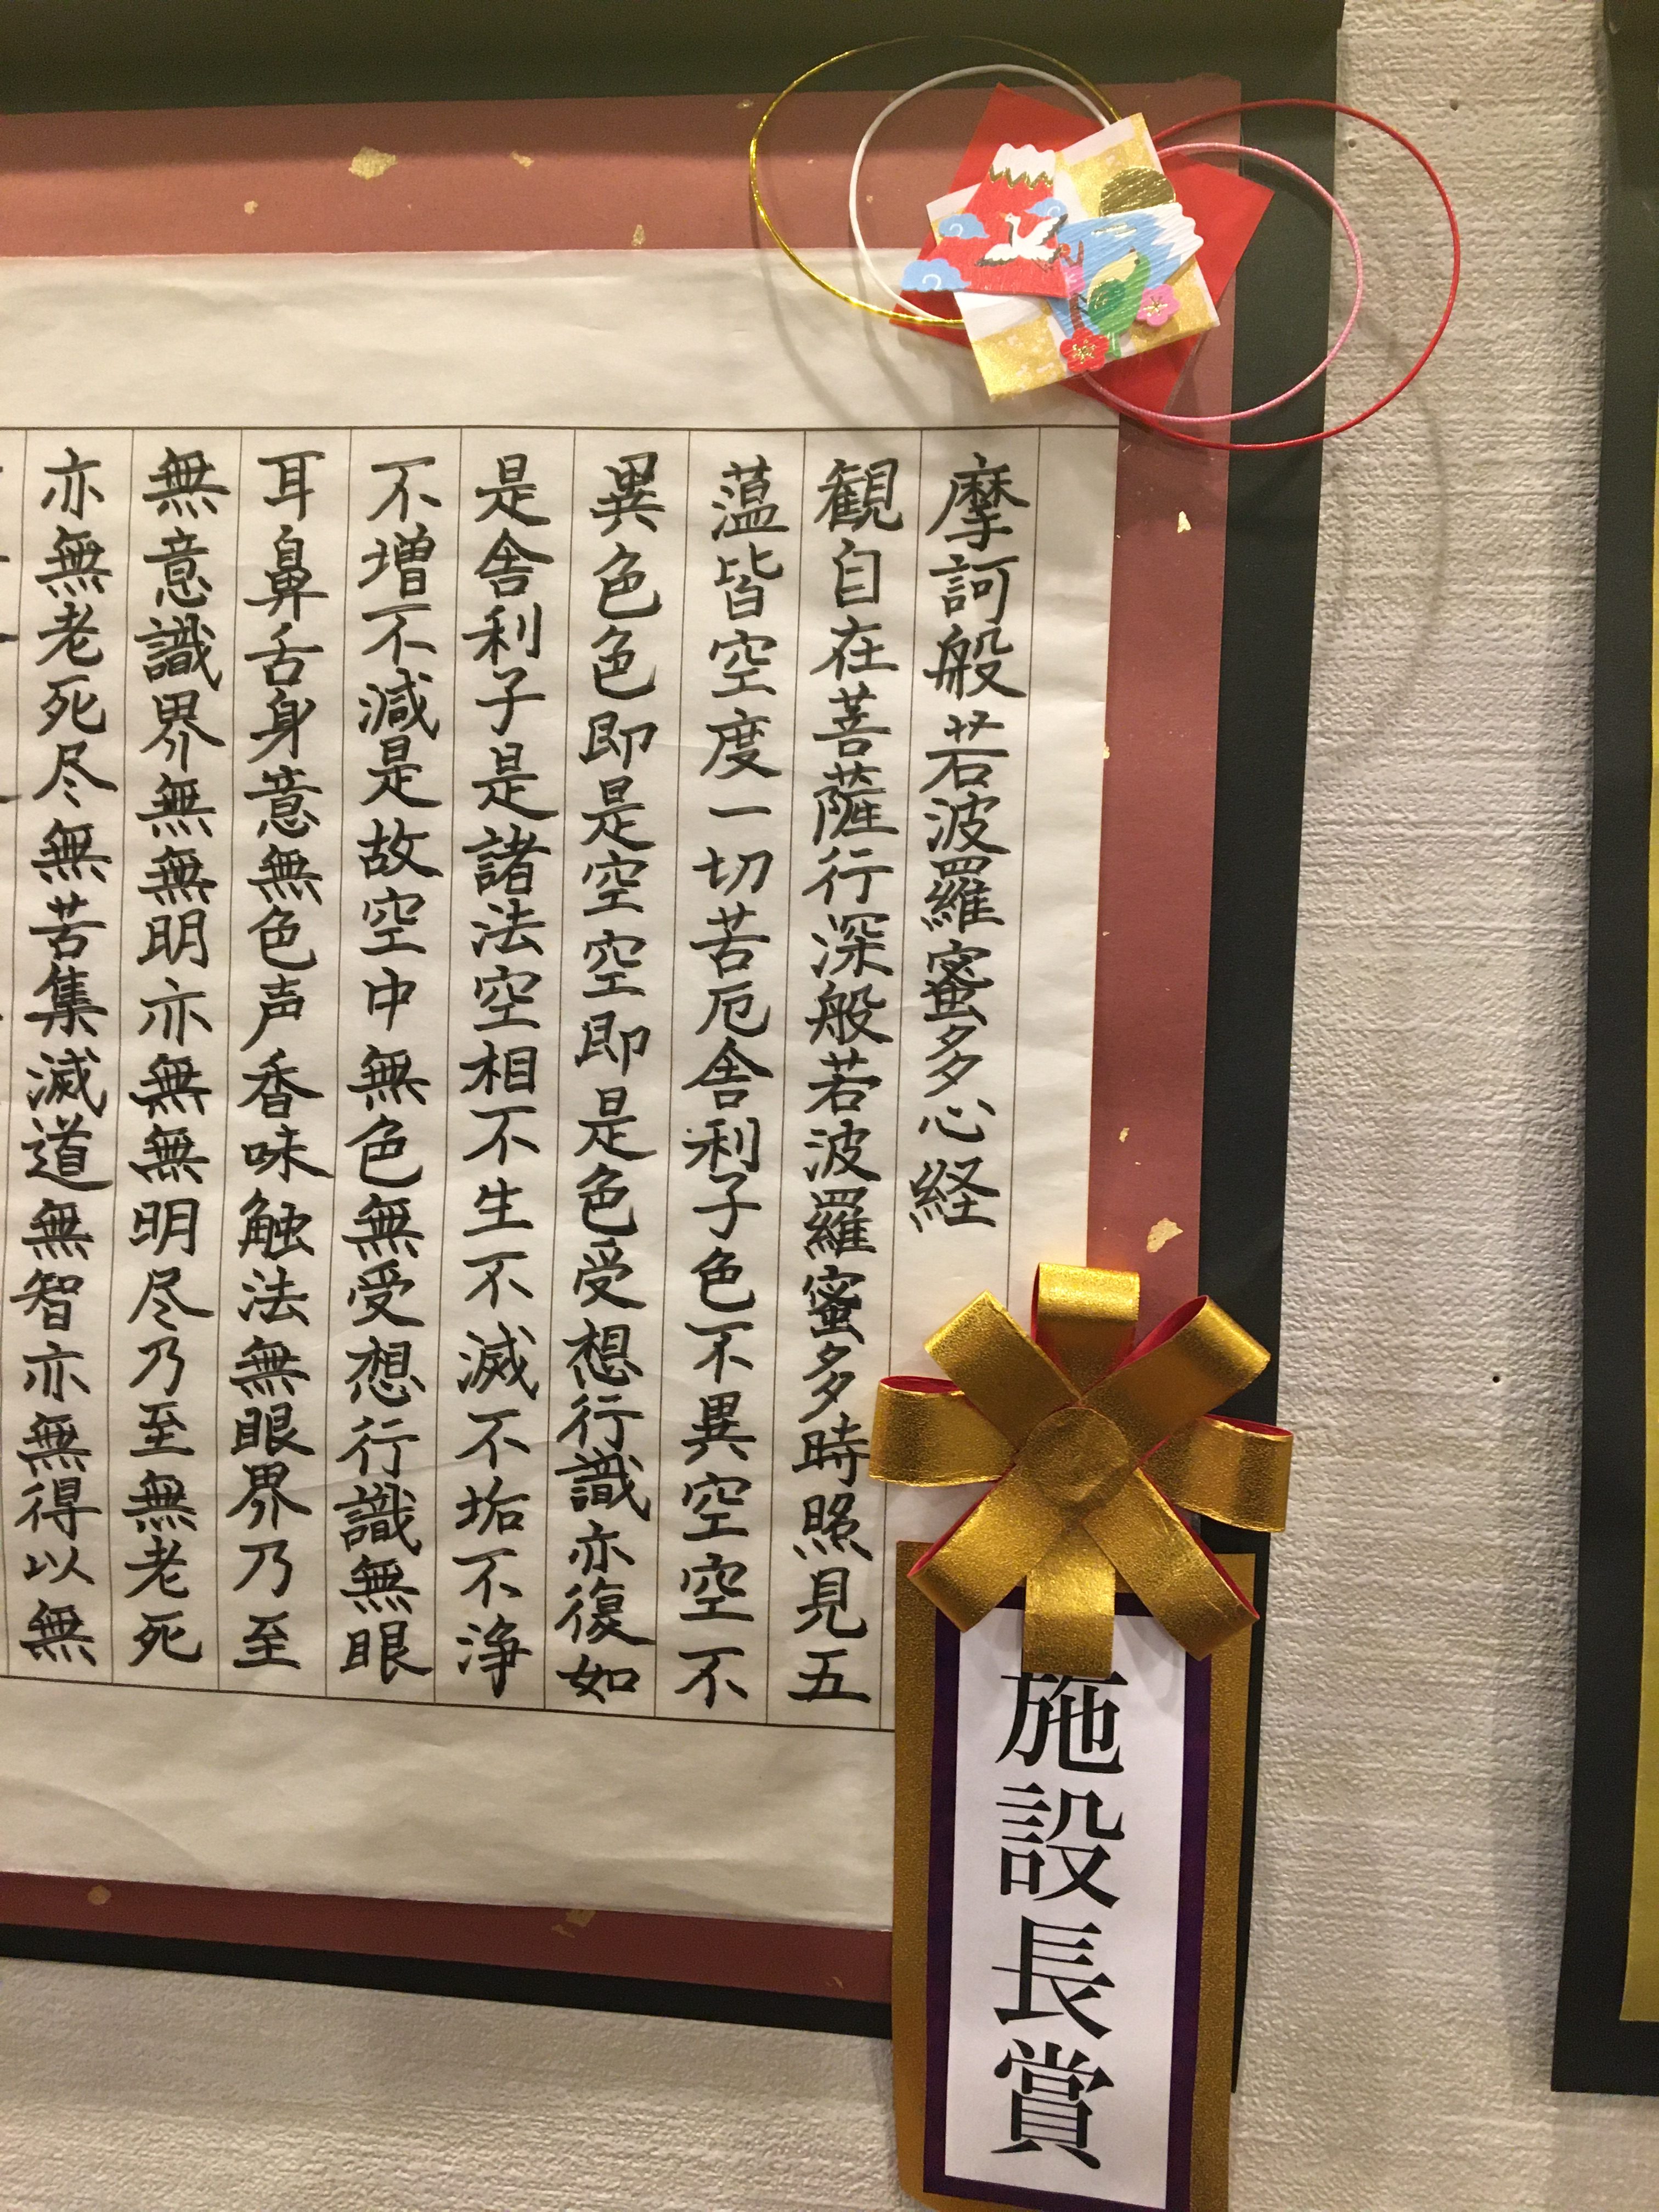 摩訶般若波羅蜜多心経
観自在菩薩行深般若波羅蜜多時照見五
蕰皆空度一切苦厄舎利子色不異空空不
異色色即是空空即是色受想行識亦復如
是舎利子是諸法空相不生不滅不垢不浄
不増不減是故空中無色無受想行識無眼
耳鼻舌身意無色声香味触法無眼界乃至
無意識界無無明亦無無明尽乃至無老死
亦無老死尽無苦集滅道無智亦無得以無
施設長賞